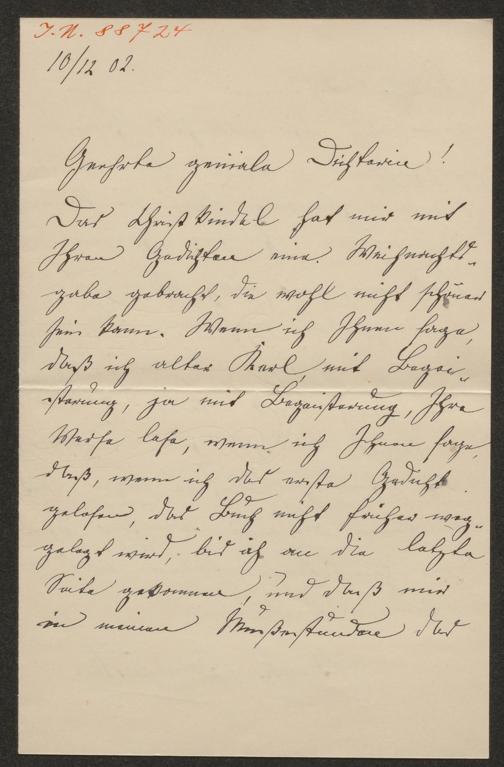 J.N. 88724
10/12 02.
Geehrte geniale Dichterin!
Das Christkindel hat mir mit
Ihren Gedichten eine Weihnachts-
gabe gebracht, die wohl nicht schöner
sein kann. Wenn ich Ihnen sage,
daß ich alter Kerl, mit Begei-
sterung, ja mit Begeisterung, Ihre
Verse lese, wenn ich Ihnen sage,
daß, wenn ich das erste Gedicht
gelesen, das Buch nicht früher weg-
gelegt wird, bis ich an die letzte
Seite gekommen, und daß mir
in meinen Mußestunden das